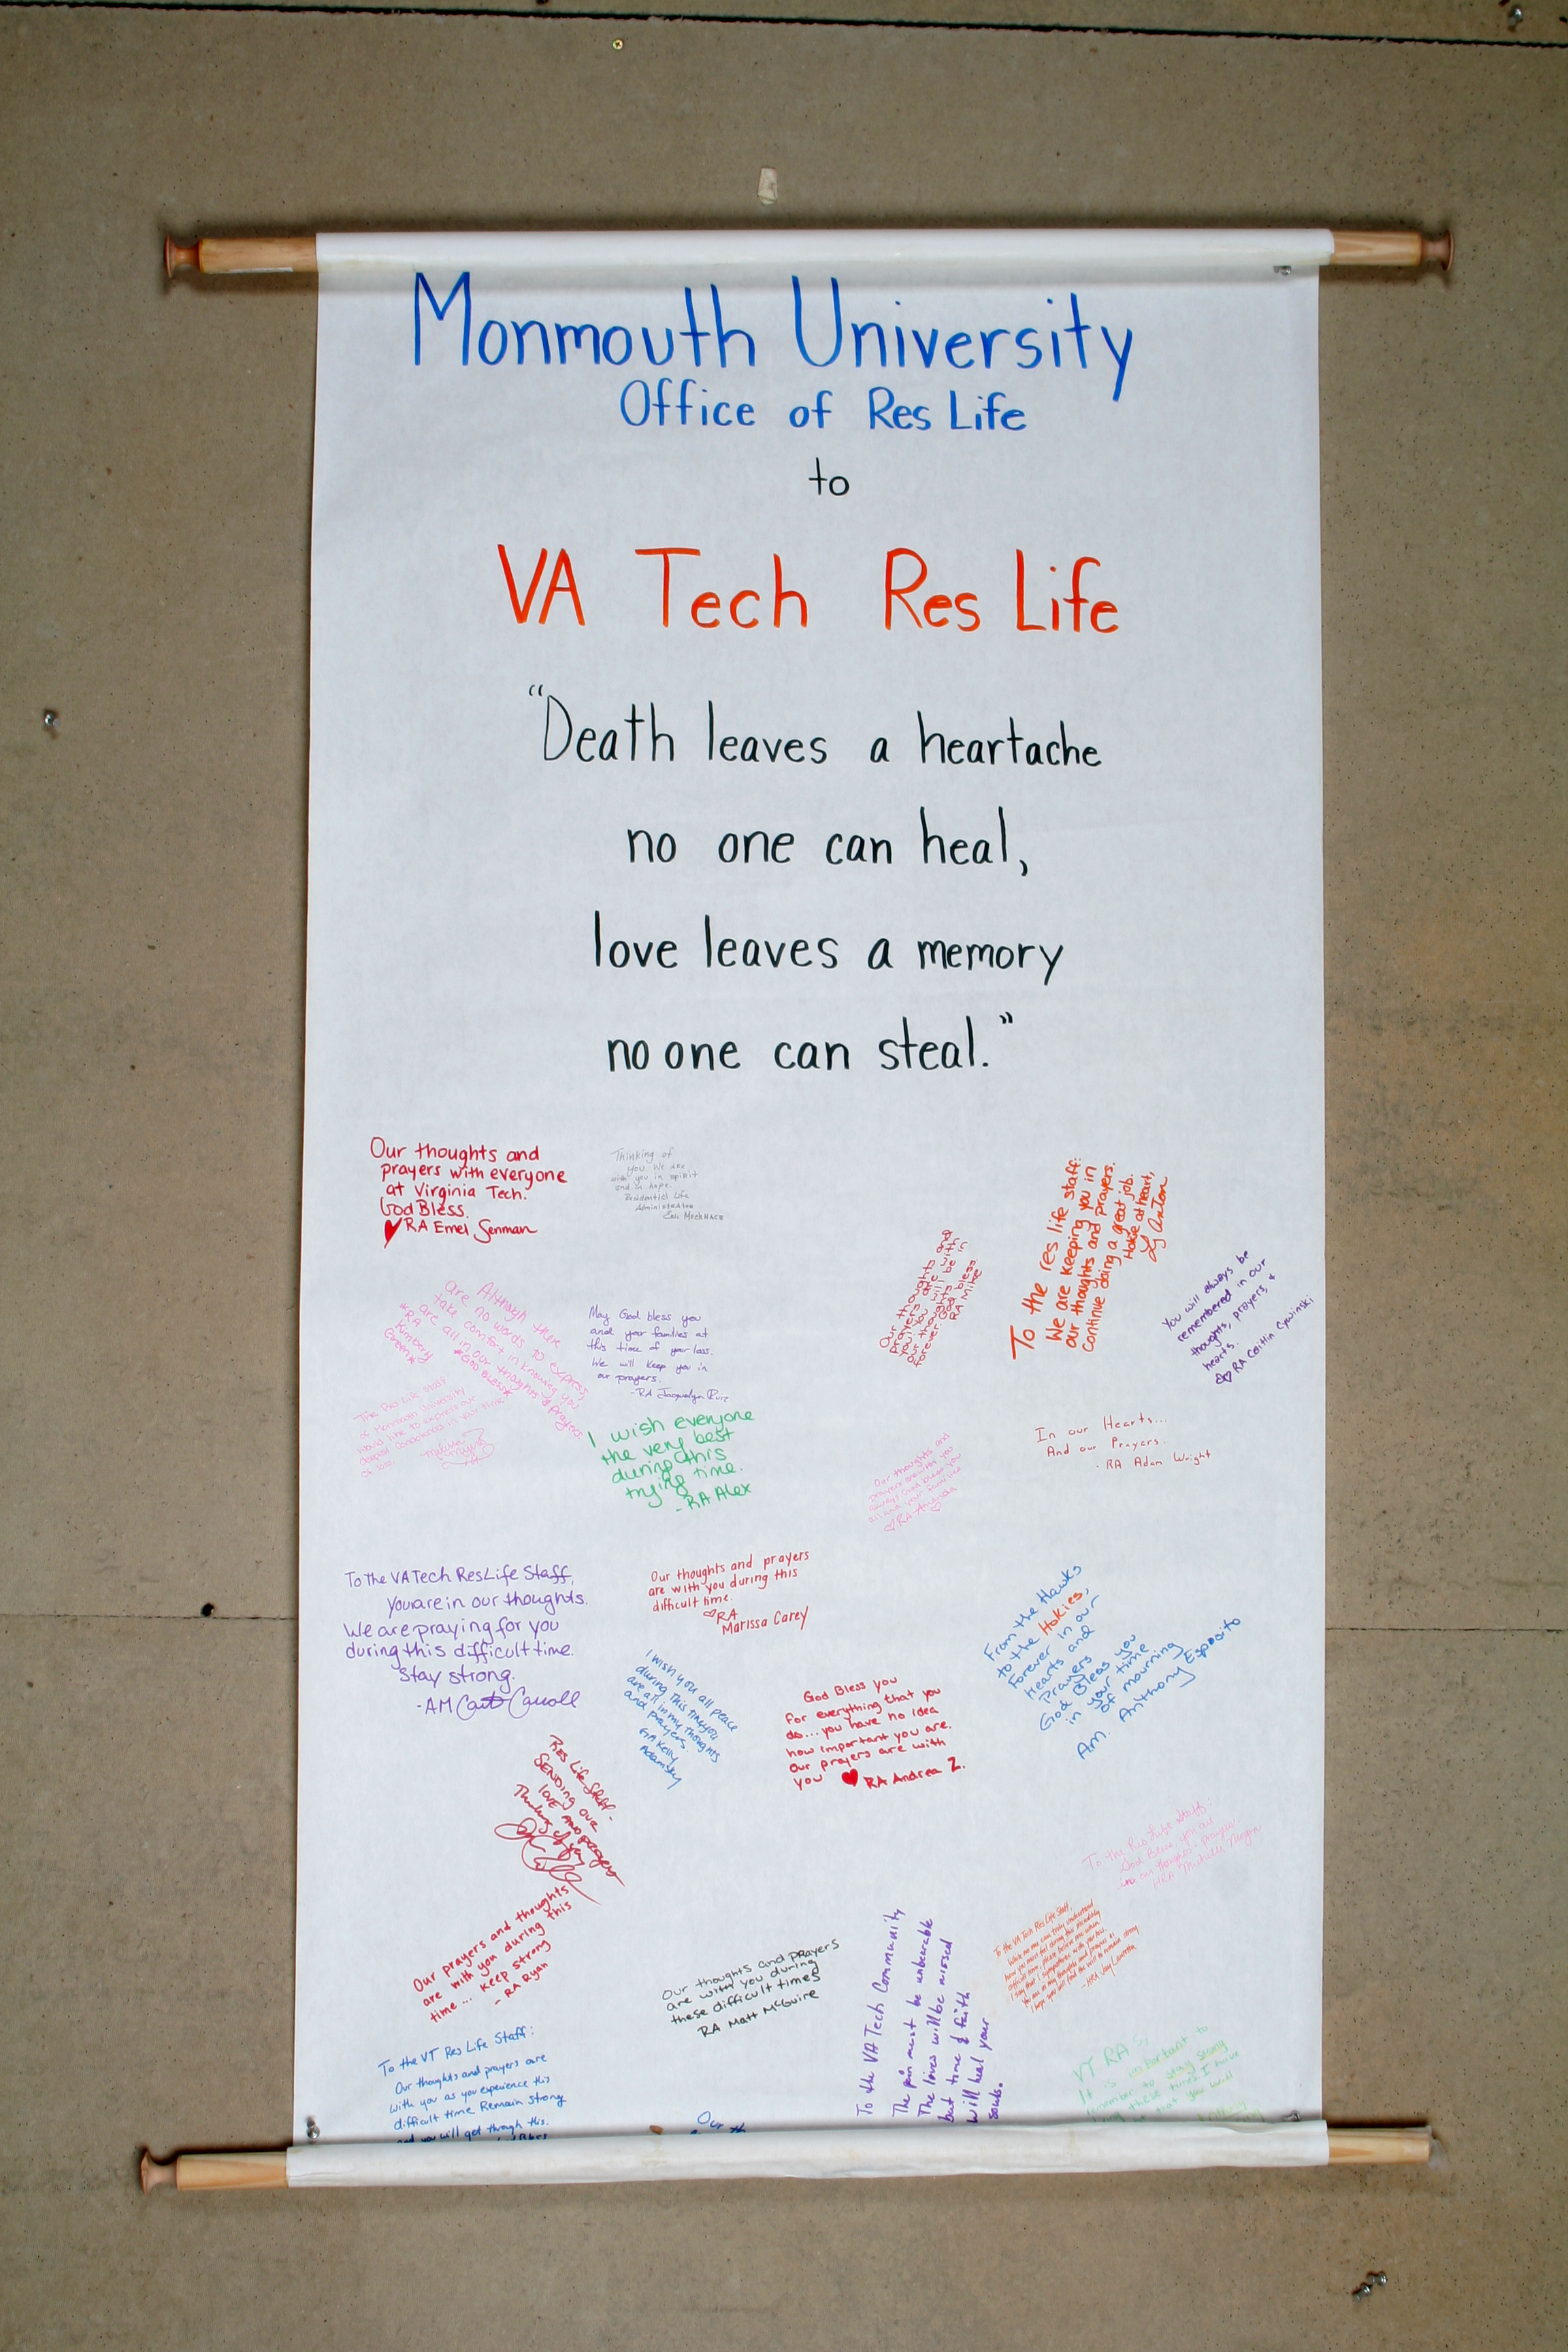 Monmouth University
Office of Res Life
to
VA Tech Res Life
"Death leaves a heartache
no one can heal,
love leaves a memory
no one can steal."
Our thoughts and
prayers with everyone
at Virginia Tech.
God Bless.
RA Emel Senman
Thinking of
you. We are
with you in spirit
and in hope.
Residential Life
Administrator
To the res life staff:
We are keeping you in
our thoughts and prayers.
Continue doing a great job.
Hokie at heart,
Our thoughts and
prayers are with
you! You will be in
our thoughts
forever. God bless
RA Mike
You will always be
remembered in our
thoughts, prayers, &
hearts.
RA Caitlin Cywinski
Although there
are no words to express,
take comfort in knowing you
are all in our thoughts & prayers
*God Bless*
*RA
Kimberly
Green*
May God bless you
and your families at
this time of your loss.
We will keep you in
our prayers.
-RA Jacquelyn Ruiz
The Res Life Staff
of Monmouth University
would like to express our
deepest condolences in your time
of loss.
I wish everyone
the very best
during this
trying time.
-RA Alex
Our thoughts and
prayers are with you
always
all and your families
RA Amanda
In our Hearts...
And our Prayers.
- RA Adam Wright
To the VA Tech Res Life Staff,
You are in our thoughts.
We are praying for you
during this difficult time.
Stay strong.
-AM Carroll
Our thoughts and prayers
are with you during this
difficult time.
RA
Marissa Carey
From the Hawks
to the Hokies,
Forever in our
Hearts and
Prayers
God Bless you
in your time
of mourning
A.M. Anthony Esposito
I wish you all peace
during this time you
are all in my thoughts
and prayers.
GA Kelly
Adamsky
God Bless you
for everything that you
do... you have no idea
how important you are.
Our prayers are with
you RA Andrea Z.
Res Life Staff-
Sending our
love and prayers
Thinking of you
To the Res Life Staff:
God Bless you all
in our thoughts & prayers
HRA Michelle
Our prayers and thoughts
are with you during this
time... keep strong
- RA Ryan
Our thoughts and prayers
are with you during
these difficult times
RA Matt McGuire
To the VA Tech Community
The pain must be unbearable
The loves will be missed
but time & faith
will heal your
souls.
To the VA Tech Res Life Staff,
While no one can truly understand
how you must feel during this
difficult time, please believe me when
I say that I sympathize with your loss.
You are in my thoughts and prayers as
I hope you all find the will to remain strong
-HRA Jay
To the VT Res Life Staff:
Our thoughts and prayers are
with you as you experience this
difficult time Remain strong
and you will get through this.
Our th
VT RA's,
It is important to
remember to stay strong
during these times. I have
that you will